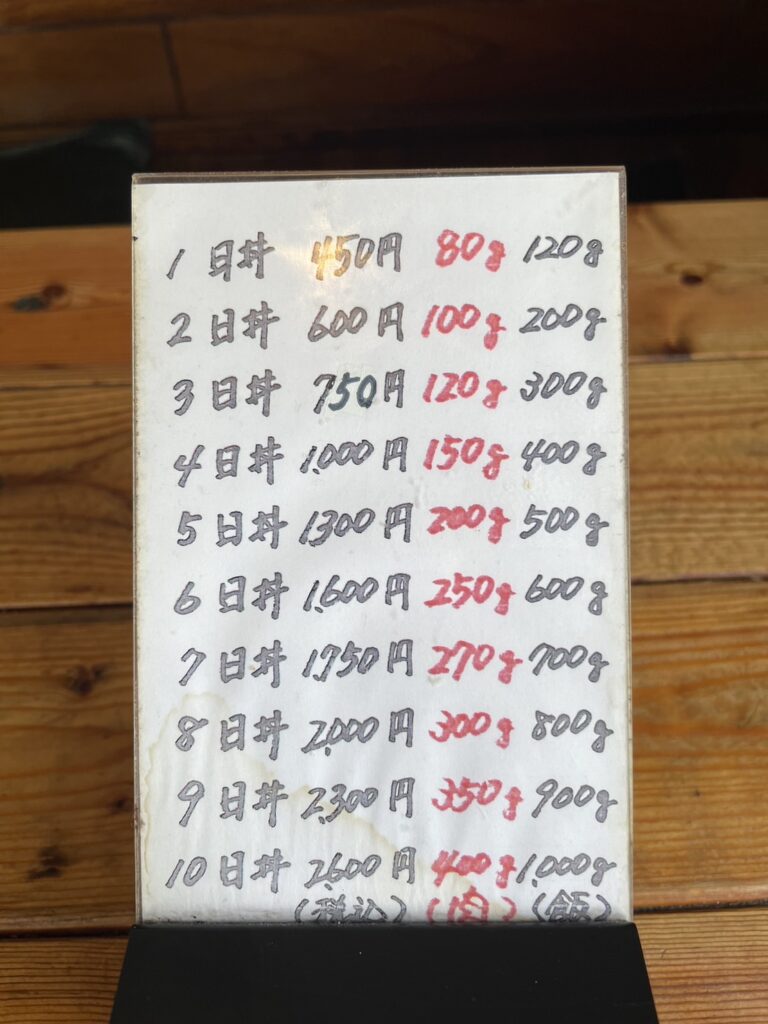 1 日丼 450円 80g 120g
2 日丼 600円 100g 200g
3 日丼 750円 120g 300g
4 日丼 1,000円 150g 400g
5 日丼 1,300円 200g 500g
6 日丼 1,600円 250g 600g
7 日丼 1,750円 270g 700g
8 日丼 2,000円 300g 800g
9 日丼 2,300円 350g 900g
10 日丼 2,600円 400g 1,000g
(税込) (肉) (飯)